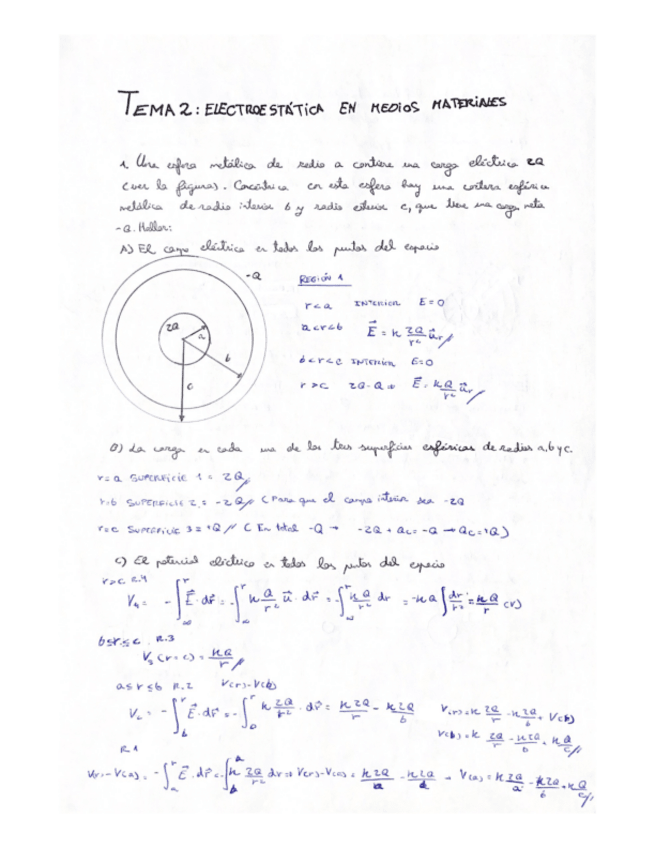 TEMA 2: ELECTROESTÁTICA EN MEDIOS MATERIALES
1. Una esfera metálica de radio a contiene una carga eléctrica 2Q
(ver la figura). Concéntrica con esta esfera hay una corteza esférica
metálica de radio interior b y radio exterior c, que tiene una carga neta
-Q. Hallar:
A) El campo eléctrico en todos los puntos del espacio
-Q
2Q
a
b
c
REGIÓN 1
r<a INTERIOR E=0
a<r<b E⃗ = k 2Q/r² u⃗r //
b<r<c INTERIOR E=0
r>c 2Q-Q ⇒ E⃗ = kQ/r² u⃗r //
B) La carga en cada una de las tres superficies esféricas de radios a, b y c.
r=a SUPERFICIE 1 = 2Q //
r=b SUPERFICIE 2 = -2Q // (Para que el campo interior sea -2Q
r=c SUPERFICIE 3 = +Q // (En total -Q → -2Q + Qc = -Q → Qc = +Q)
C) El potencial eléctrico en todos los puntos del espacio
r>c R.4
V₄ = -∫∞^r E⃗·dr⃗ = -∫∞^r k Q/r² u⃗·dr⃗ = -∫∞^r kQ/r² dr = -kQ ∫ dr/r² = kQ/r (V)
b≤r≤c R.3
V₃ (r=c) = kQ/r //
a≤r≤b R.2 V(r)-V(b)
V₂ = -∫b^r E⃗·dr⃗ = -∫b^r k 2Q/r² · dr⃗ = k2Q/r - k2Q/b V(r) = k 2Q/r - k 2Q/b + V(b)
V(b) = k 2Q/r - k 2Q/b + k Q/c //
R.1
V(r)-V(a) = -∫a^r E⃗·dr⃗ = -∫b^a k 2Q/r² dr ⇒ V(r)-V(a) = k2Q/a - k2Q/b → V(a) = k 2Q/a - k2Q/b + kQ/c //